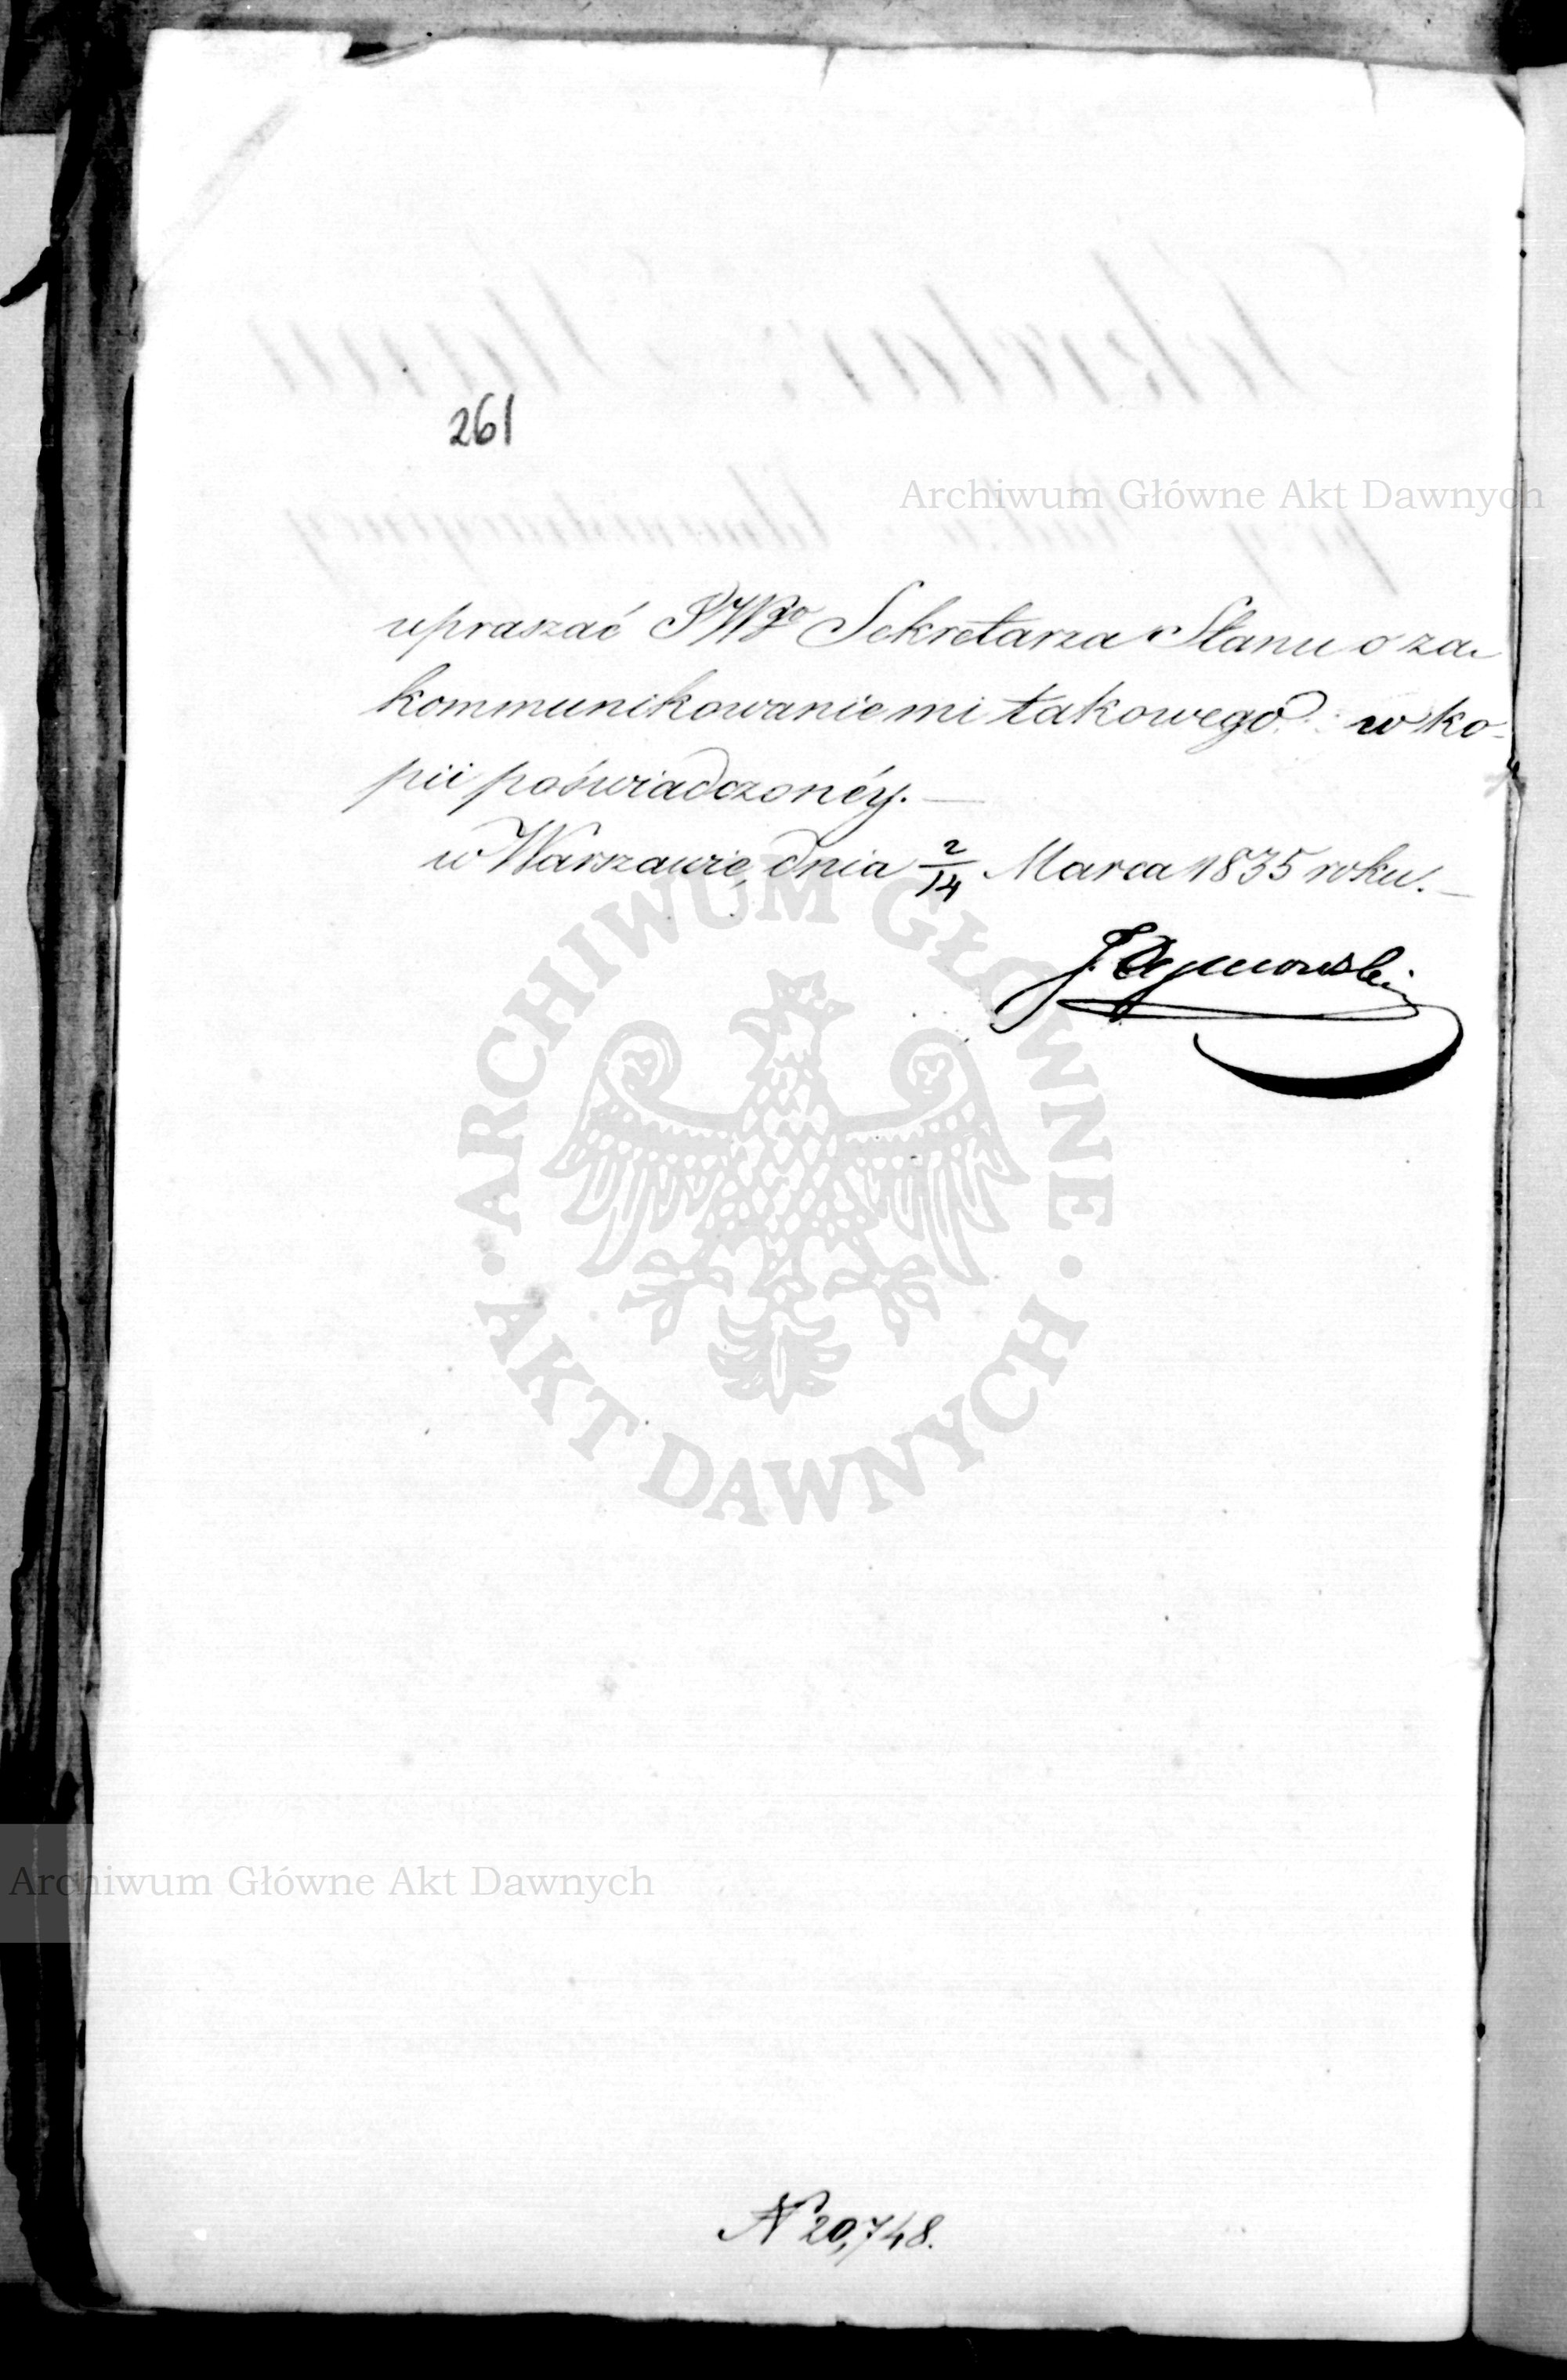 261
Archiwum Główne Akt Dawnych
upraszać JWgo Sekretarza Stanu o za-
kommunikowanie mi takowego w ko-
pii poświadczonéy.—
w Warszawie, dnia 2/14 Marca 1835 roku.—
ARCHIWUM GŁÓWNE
AKT DAWNYCH
Archiwum Główne Akt Dawnych
N 20,748.